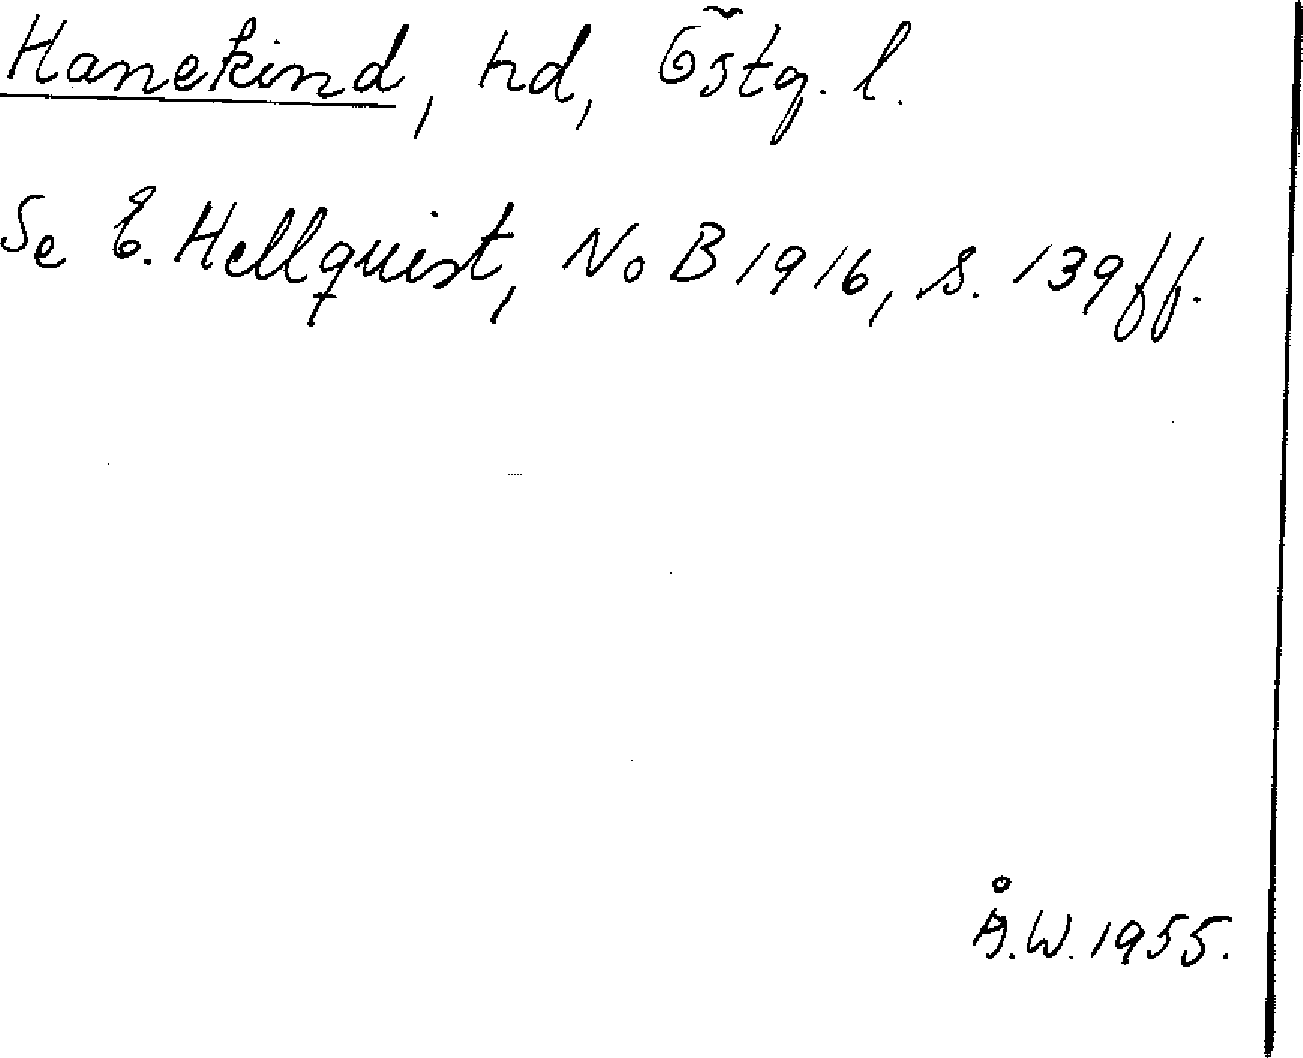 Hanekind, hd, Östg. l.
Se E. Hellquist, NoB 1916, s. 139 ff.
Å.W. 1955.